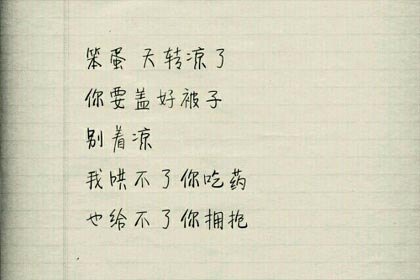 笨蛋 天转凉了
你要盖好被子
别着凉
我哄不了你吃药
也给不了你拥抱